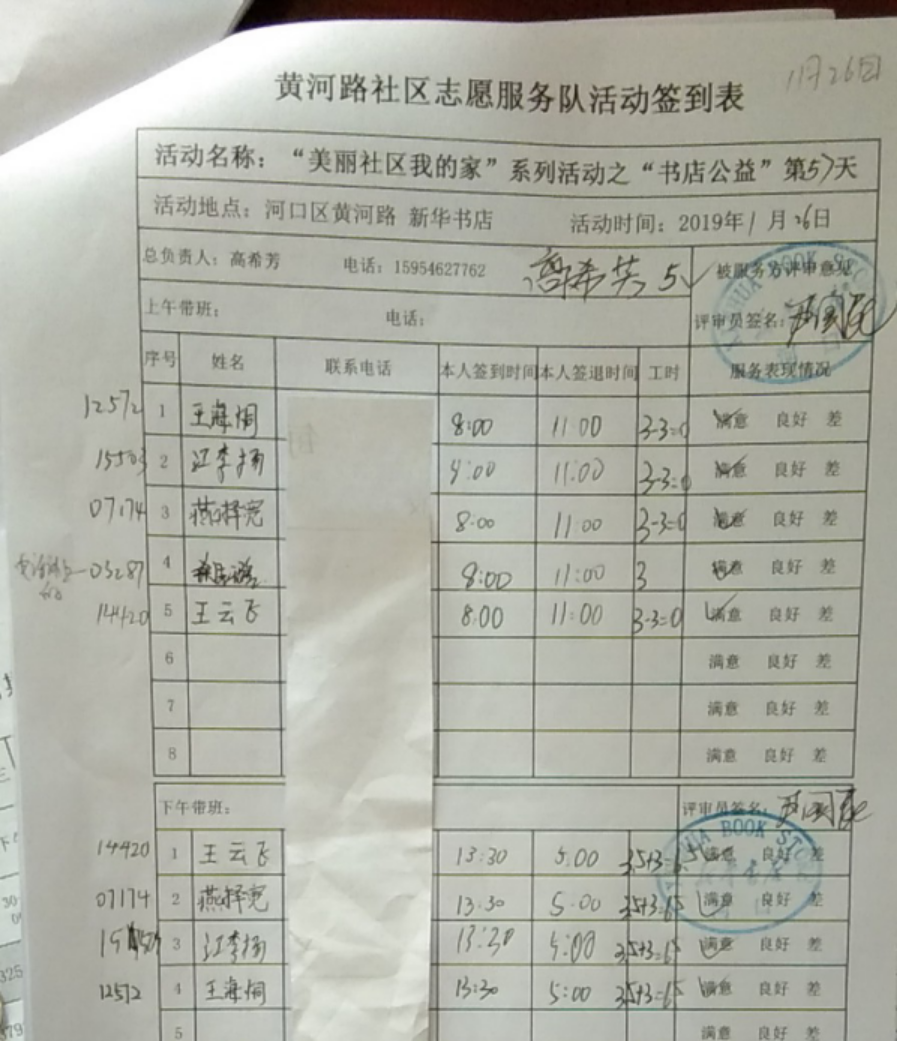 11月26日
黄河路社区志愿服务队活动签到表
活动名称：“美丽社区我的家”系列活动之“书店公益”第57天
活动地点：河口区黄河路 新华书店 活动时间：2019年1月26日
总负责人：高希芳 电话：15954627762 高希芳 5 被服务方评审意见
上午带班： 电话： 评审员签名：
序号 姓名 联系电话 本人签到时间 本人签退时间 工时 服务表现情况
12572 1 王海桐 8:00 11:00 3-3=0 满意 良好 差
15503 2 江李扬 8:00 11:00 3-3=0 满意 良好 差
07174 3 燕择宽 8:00 11:00 3-3=0 满意 良好 差
03287 4 8:00 11:00 3 满意 良好 差
14420 5 王云飞 8:00 11:00 3-3=0 满意 良好 差
6 满意 良好 差
7 满意 良好 差
8 满意 良好 差
下午带班： 评审员签名：
XINHUA BOOK STORE
14420 1 王云飞 13:30 5:00 3.5+3=6.5 满意 良好 差
07174 2 燕择宽 13:30 5:00 3.5+3=6.5 满意 良好 差
3 江李扬 13:30 5:00 3.5+3=6.5 满意 良好 差
12572 4 王海桐 13:30 5:00 3.5+3=6.5 满意 良好 差
5 满意 良好 差